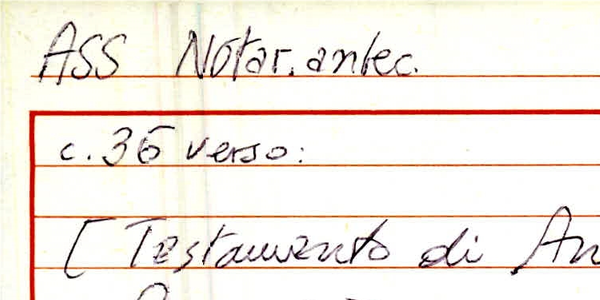 ASS Notar. antec.
c. 36 verso:
[Testamento di An